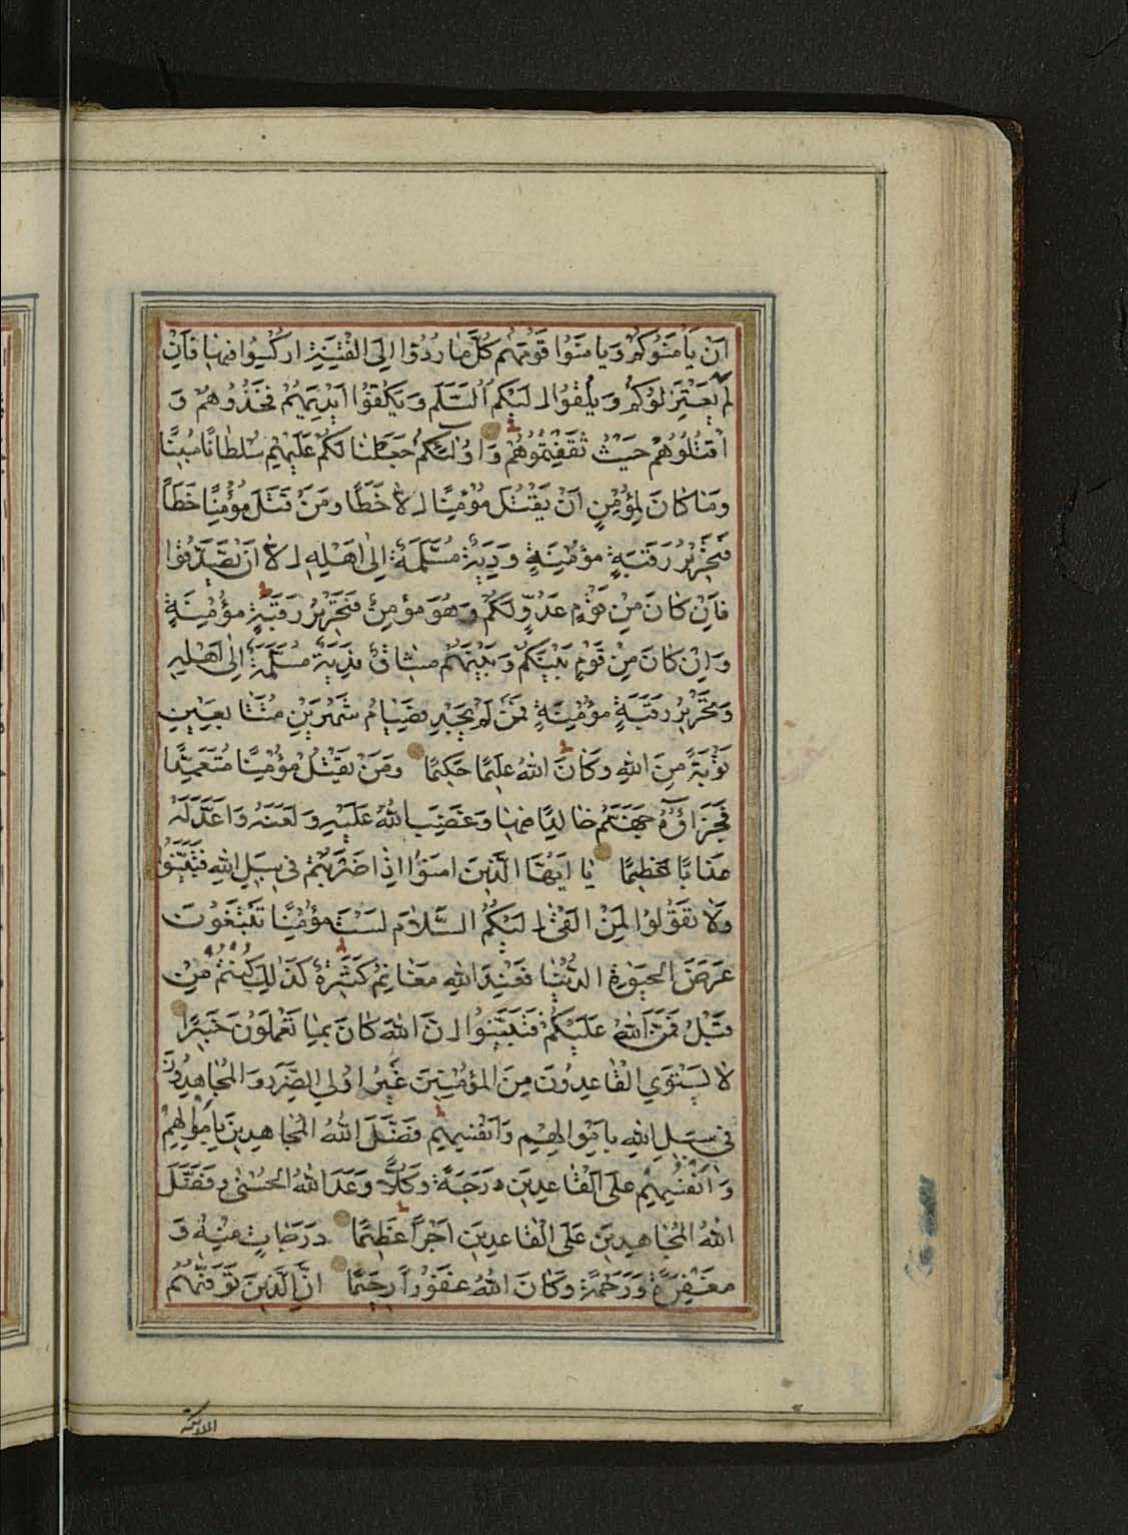 اَنْ يَأْمَنُوكُمْ وَيَأْمَنُوا قَوْمَهُمْ كُلَّ مٰا رُدُّوا اِلَى الْفِتْنَةِ اُرْكِسُوا فِيهٰا فَاِنْ
لَمْ يَعْتَزِلُوكُمْ وَيُلْقُوا اِلَيْكُمُ السَّلَمَ وَيَكُفُّوا اَيْدِيَهُمْ فَخُذُوهُمْ وَ
اقْتُلُوهُمْ حَيْثُ ثَقِفْتُمُوهُمْ وَاُولٰئِكُمْ جَعَلْنٰا لَكُمْ عَلَيْهِمْ سُلْطٰانًا مُبِينًا
وَمٰا كٰانَ لِمُؤْمِنٍ اَنْ يَقْتُلَ مُؤْمِنًا اِلاّٰ خَطَأً وَمَنْ قَتَلَ مُؤْمِنًا خَطَأً
فَتَحْرِيرُ رَقَبَةٍ مُؤْمِنَةٍ وَدِيَةٌ مُسَلَّمَةٌ اِلٰى اَهْلِهِ اِلاّٰ اَنْ يَصَّدَّقُوا
فَاِنْ كٰانَ مِنْ قَوْمٍ عَدُوٍّ لَكُمْ وَهُوَ مُؤْمِنٌ فَتَحْرِيرُ رَقَبَةٍ مُؤْمِنَةٍ
وَاِنْ كٰانَ مِنْ قَوْمٍ بَيْنَكُمْ وَبَيْنَهُمْ مِيثٰاقٌ فَدِيَةٌ مُسَلَّمَةٌ اِلٰى اَهْلِهِ
وَتَحْرِيرُ رَقَبَةٍ مُؤْمِنَةٍ فَمَنْ لَمْ يَجِدْ فَصِيٰامُ شَهْرَيْنِ مُتَتٰابِعَيْنِ
تَوْبَةً مِنَ اللهِ وَكٰانَ اللهُ عَلِيمًا حَكِيمًا وَمَنْ يَقْتُلْ مُؤْمِنًا مُتَعَمِّدًا
فَجَزٰاؤُهُ جَهَنَّمُ خٰالِدًا فِيهٰا وَغَضِبَ اللهُ عَلَيْهِ وَلَعَنَهُ وَاَعَدَّ لَهُ
عَذٰابًا عَظِيمًا يٰا اَيُّهَا الَّذِينَ اٰمَنُوا اِذٰا ضَرَبْتُمْ فِي سَبِيلِ اللهِ فَتَبَيَّنُوا
وَلاٰ تَقُولُوا لِمَنْ اَلْقىٰ اِلَيْكُمُ السَّلاٰمَ لَسْتَ مُؤْمِنًا تَبْتَغُونَ
عَرَضَ الْحَيٰوةِ الدُّنْيٰا فَعِنْدَ اللهِ مَغٰانِمُ كَثِيرَةٌ كَذٰلِكَ كُنْتُمْ مِنْ
قَبْلُ فَمَنَّ اللهُ عَلَيْكُمْ فَتَبَيَّنُوا اِنَّ اللهَ كٰانَ بِمٰا تَعْمَلُونَ خَبِيرًا
لاٰ يَسْتَوِي الْقٰاعِدُونَ مِنَ الْمُؤْمِنِينَ غَيْرُ اُولِي الضَّرَرِ وَالْمُجٰاهِدُونَ
فِي سَبِيلِ اللهِ بِاَمْوٰالِهِمْ وَاَنْفُسِهِمْ فَضَّلَ اللهُ الْمُجٰاهِدِينَ بِاَمْوٰالِهِمْ
وَاَنْفُسِهِمْ عَلَى الْقٰاعِدِينَ دَرَجَةً وَكُلًّا وَعَدَ اللهُ الْحُسْنىٰ وَفَضَّلَ
اللهُ الْمُجٰاهِدِينَ عَلَى الْقٰاعِدِينَ اَجْرًا عَظِيمًا دَرَجٰاتٍ مِنْهُ وَ
مَغْفِرَةً وَرَحْمَةً وَكٰانَ اللهُ غَفُورًا رَحِيمًا اِنَّ الَّذِينَ تَوَفّٰيهُمُ
الملائكة